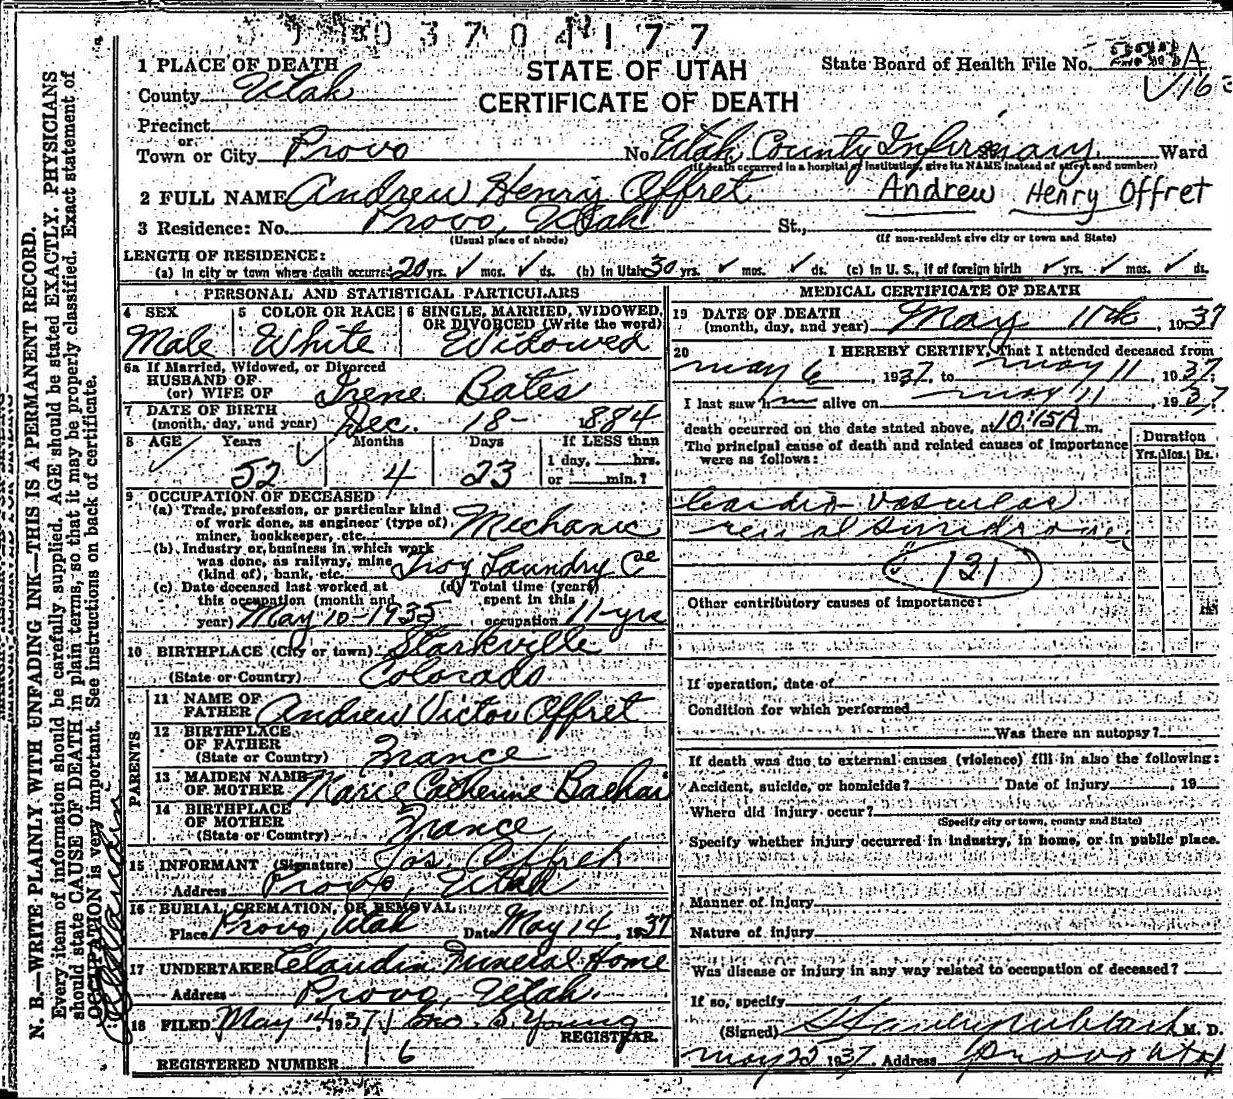 3704177
1 PLACE OF DEATH
STATE OF UTAH
State Board of Health File No. 223 A
County Utah
CERTIFICATE OF DEATH
V 163
Precinct
or
Town or City Provo No. Utah County Infirmary Ward
(If death occurred in a hospital or institution, give its NAME instead of street and number)
2 FULL NAME Andrew Henry Offret Andrew Henry Offret
3 Residence: No. Provo, Utah St.,
(Usual place of abode) (If non-resident give city or town and State)
LENGTH OF RESIDENCE:
(a) In city or town where death occurred 20 yrs. ✓ mos. ✓ ds. (b) In Utah 30 yrs. ✓ mos. ✓ ds. (c) In U. S., if of foreign birth ✓ yrs. ✓ mos. ✓ ds.
PERSONAL AND STATISTICAL PARTICULARS
4 SEX 5 COLOR OR RACE 6 SINGLE, MARRIED, WIDOWED,
OR DIVORCED (Write the word)
Male White Widowed
6a If Married, Widowed, or Divorced
HUSBAND OF
(or) WIFE OF Irene Bates
7 DATE OF BIRTH
(month, day, and year) Dec. 18 - 1884
8 AGE Years Months Days If LESS than
1 day, hrs.
52 4 23 or min.?
9 OCCUPATION OF DECEASED
(a) Trade, profession, or particular kind
of work done, as engineer (type of)
miner, bookkeeper, etc. Mechanic
(b) Industry or business in which work
was done, as railway, mine
(kind of), bank, etc. Troy Laundry Co
(c) Date deceased last worked at (d) Total time (years)
this occupation (month and spent in this
year) May 10-1935 occupation 11-yrs
10 BIRTHPLACE (City or town) Starkville
(State or Country) Colorado
PARENTS
11 NAME OF
FATHER Andrew Victor Offret
12 BIRTHPLACE
OF FATHER
(State or Country) France
13 MAIDEN NAME
OF MOTHER Marie Catherine Bachar
14 BIRTHPLACE
OF MOTHER
(State or Country) France
15 INFORMANT (Signature) Jos. Offret
Address Provo, Utah
16 BURIAL, CREMATION, OR REMOVAL
Place Provo, Utah Date May 14, 1937
17 UNDERTAKER Claudin Funeral Home
Address Provo, Utah.
18 FILED May 14, 1937 Geo. S. Young
REGISTRAR.
REGISTERED NUMBER 16
MEDICAL CERTIFICATE OF DEATH
19 DATE OF DEATH
(month, day, and year) May 11th, 1937
20 I HEREBY CERTIFY, That I attended deceased from
may 6, 1937, to may 11, 1937;
I last saw him alive on may 11, 1937
death occurred on the date stated above, at 10:15A m.
The principal cause of death and related causes of importance
were as follows:
Duration
Yrs. Mos. Ds.
Cardio-vascular
renal syndrome
131
Other contributory causes of importance:
If operation, date of
Condition for which performed
Was there an autopsy?
If death was due to external causes (violence) fill in also the following:
Accident, suicide, or homicide? Date of injury, 19
Where did injury occur?
(Specify city or town, county and State)
Specify whether injury occurred in industry, in home, or in public place.
Manner of injury
Nature of injury
Was disease or injury in any way related to occupation of deceased?
If so, specify
(Signed) M. D.
may 22 1937 Address Provo Utah
N. B.—WRITE PLAINLY WITH UNFADING INK—THIS IS A PERMANENT RECORD.
Every item of information should be carefully supplied. AGE should be stated EXACTLY. PHYSICIANS
should state CAUSE OF DEATH in plain terms, so that it may be properly classified. Exact statement of
OCCUPATION is very important. See instructions on back of certificate.